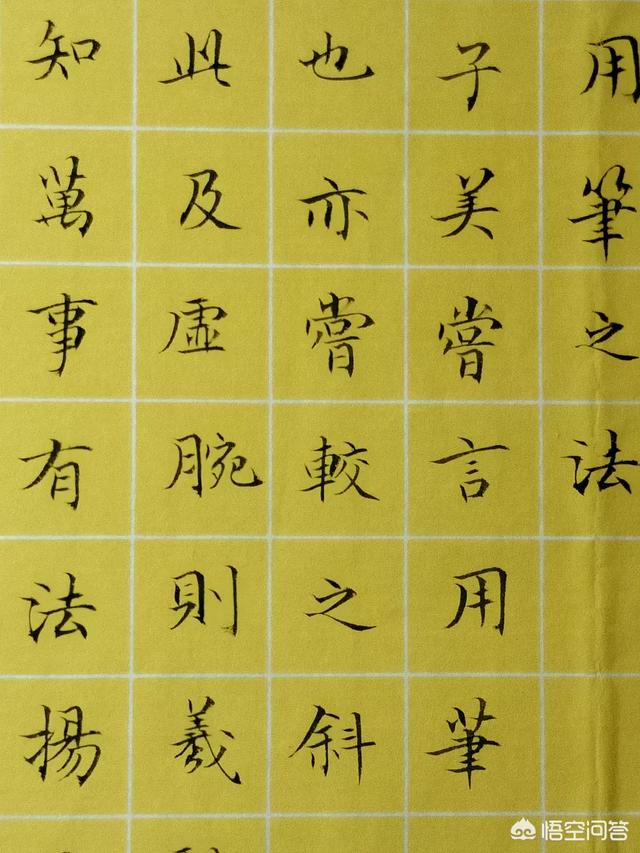 用筆之法
子美嘗言用筆
也亦嘗較之斜
此及虛腕則羲
知萬事有法揚
悟空问答